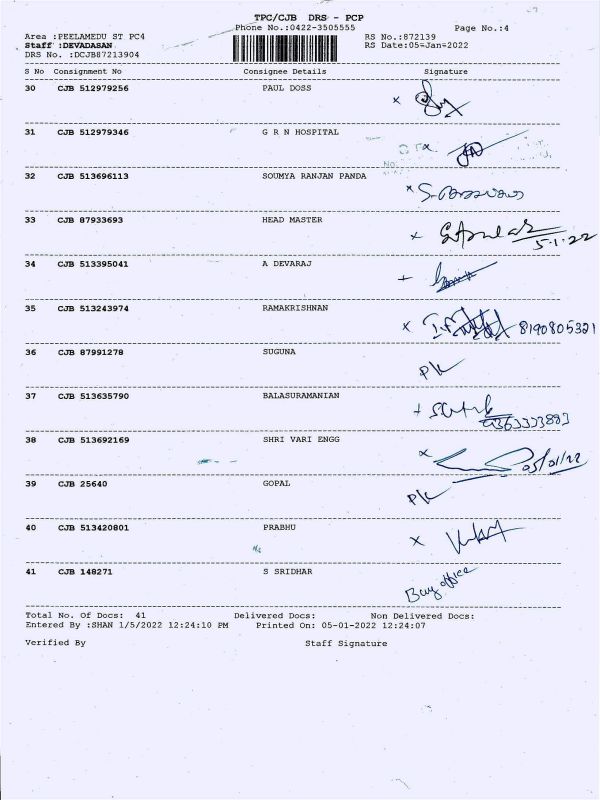 TPC/CJB DRS - PCP
Phone No.:0422-3505555 Page No.:4
Area :PEELAMEDU ST PC4 RS No.:872139
Staff :DEVADASAN RS Date:05-Jan-2022
DRS No. :DCJB87213904
S No Consignment No Consignee Details Signature
30 CJB 512979256 PAUL DOSS x
31 CJB 512979346 G R N HOSPITAL
32 CJB 513696113 SOUMYA RANJAN PANDA x
33 CJB 87933693 HEAD MASTER x
5.1.22
34 CJB 513395041 A DEVARAJ +
35 CJB 513243974 RAMAKRISHNAN x 8190805321
36 CJB 87991278 SUGUNA PK
37 CJB 513635790 BALASURAMANIAN +
38 CJB 513692169 SHRI VARI ENGG x 05/01/22
39 CJB 25640 GOPAL PK
40 CJB 513420801 PRABHU x
41 CJB 148271 S SRIDHAR office
Total No. Of Docs: 41 Delivered Docs: Non Delivered Docs:
Entered By :SHAN 1/5/2022 12:24:10 PM Printed On: 05-01-2022 12:24:07
Verified By Staff Signature